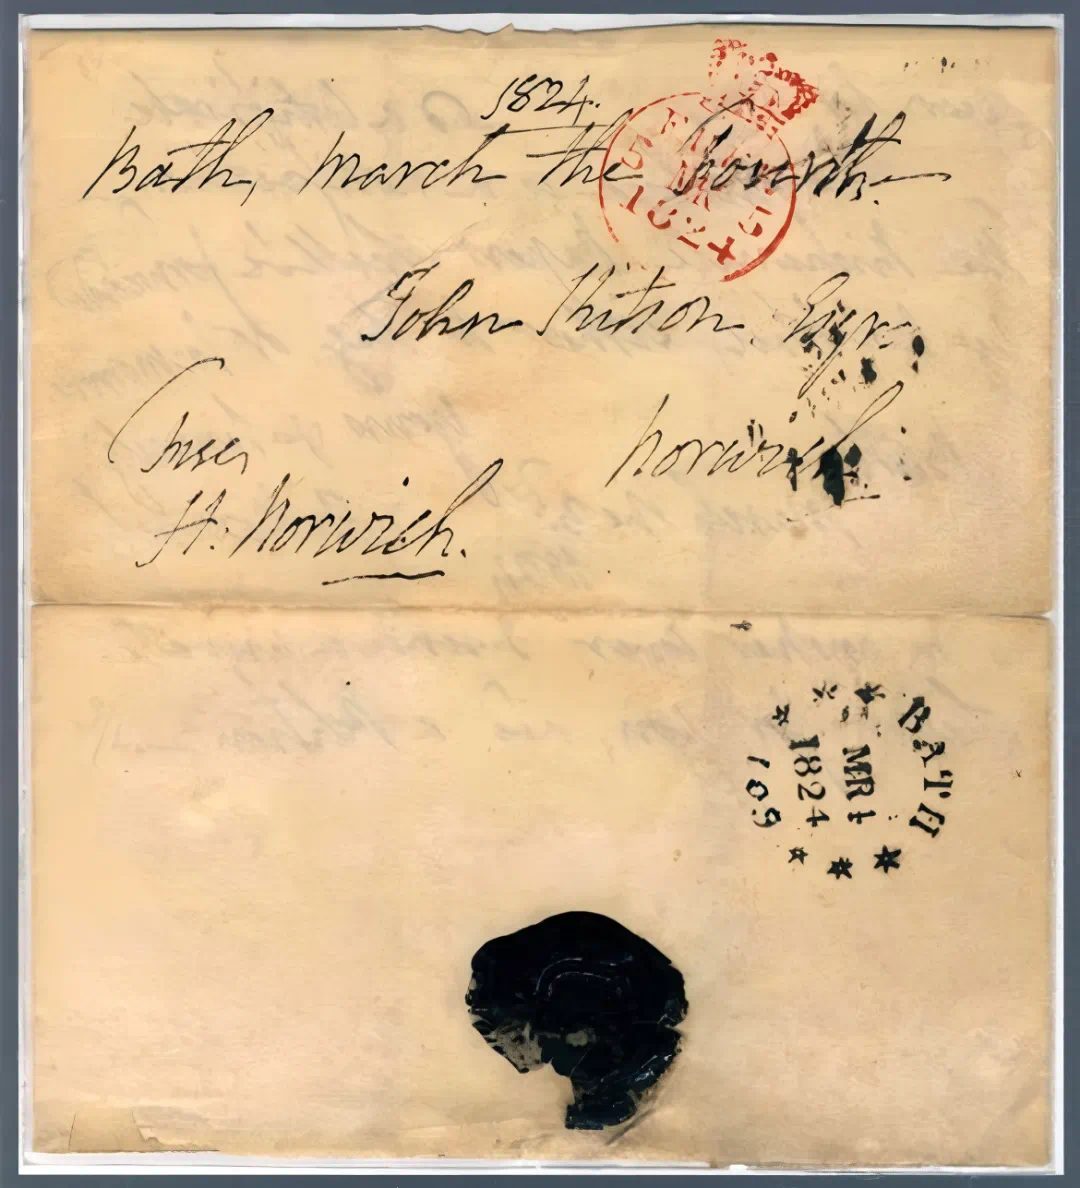 1824.
Bath, March the fourth.
FREE
5 MR 5
1824
John Kitson Esqr
Norwich
Free,
H: Norwich.
BATH
MR 4
1824
109